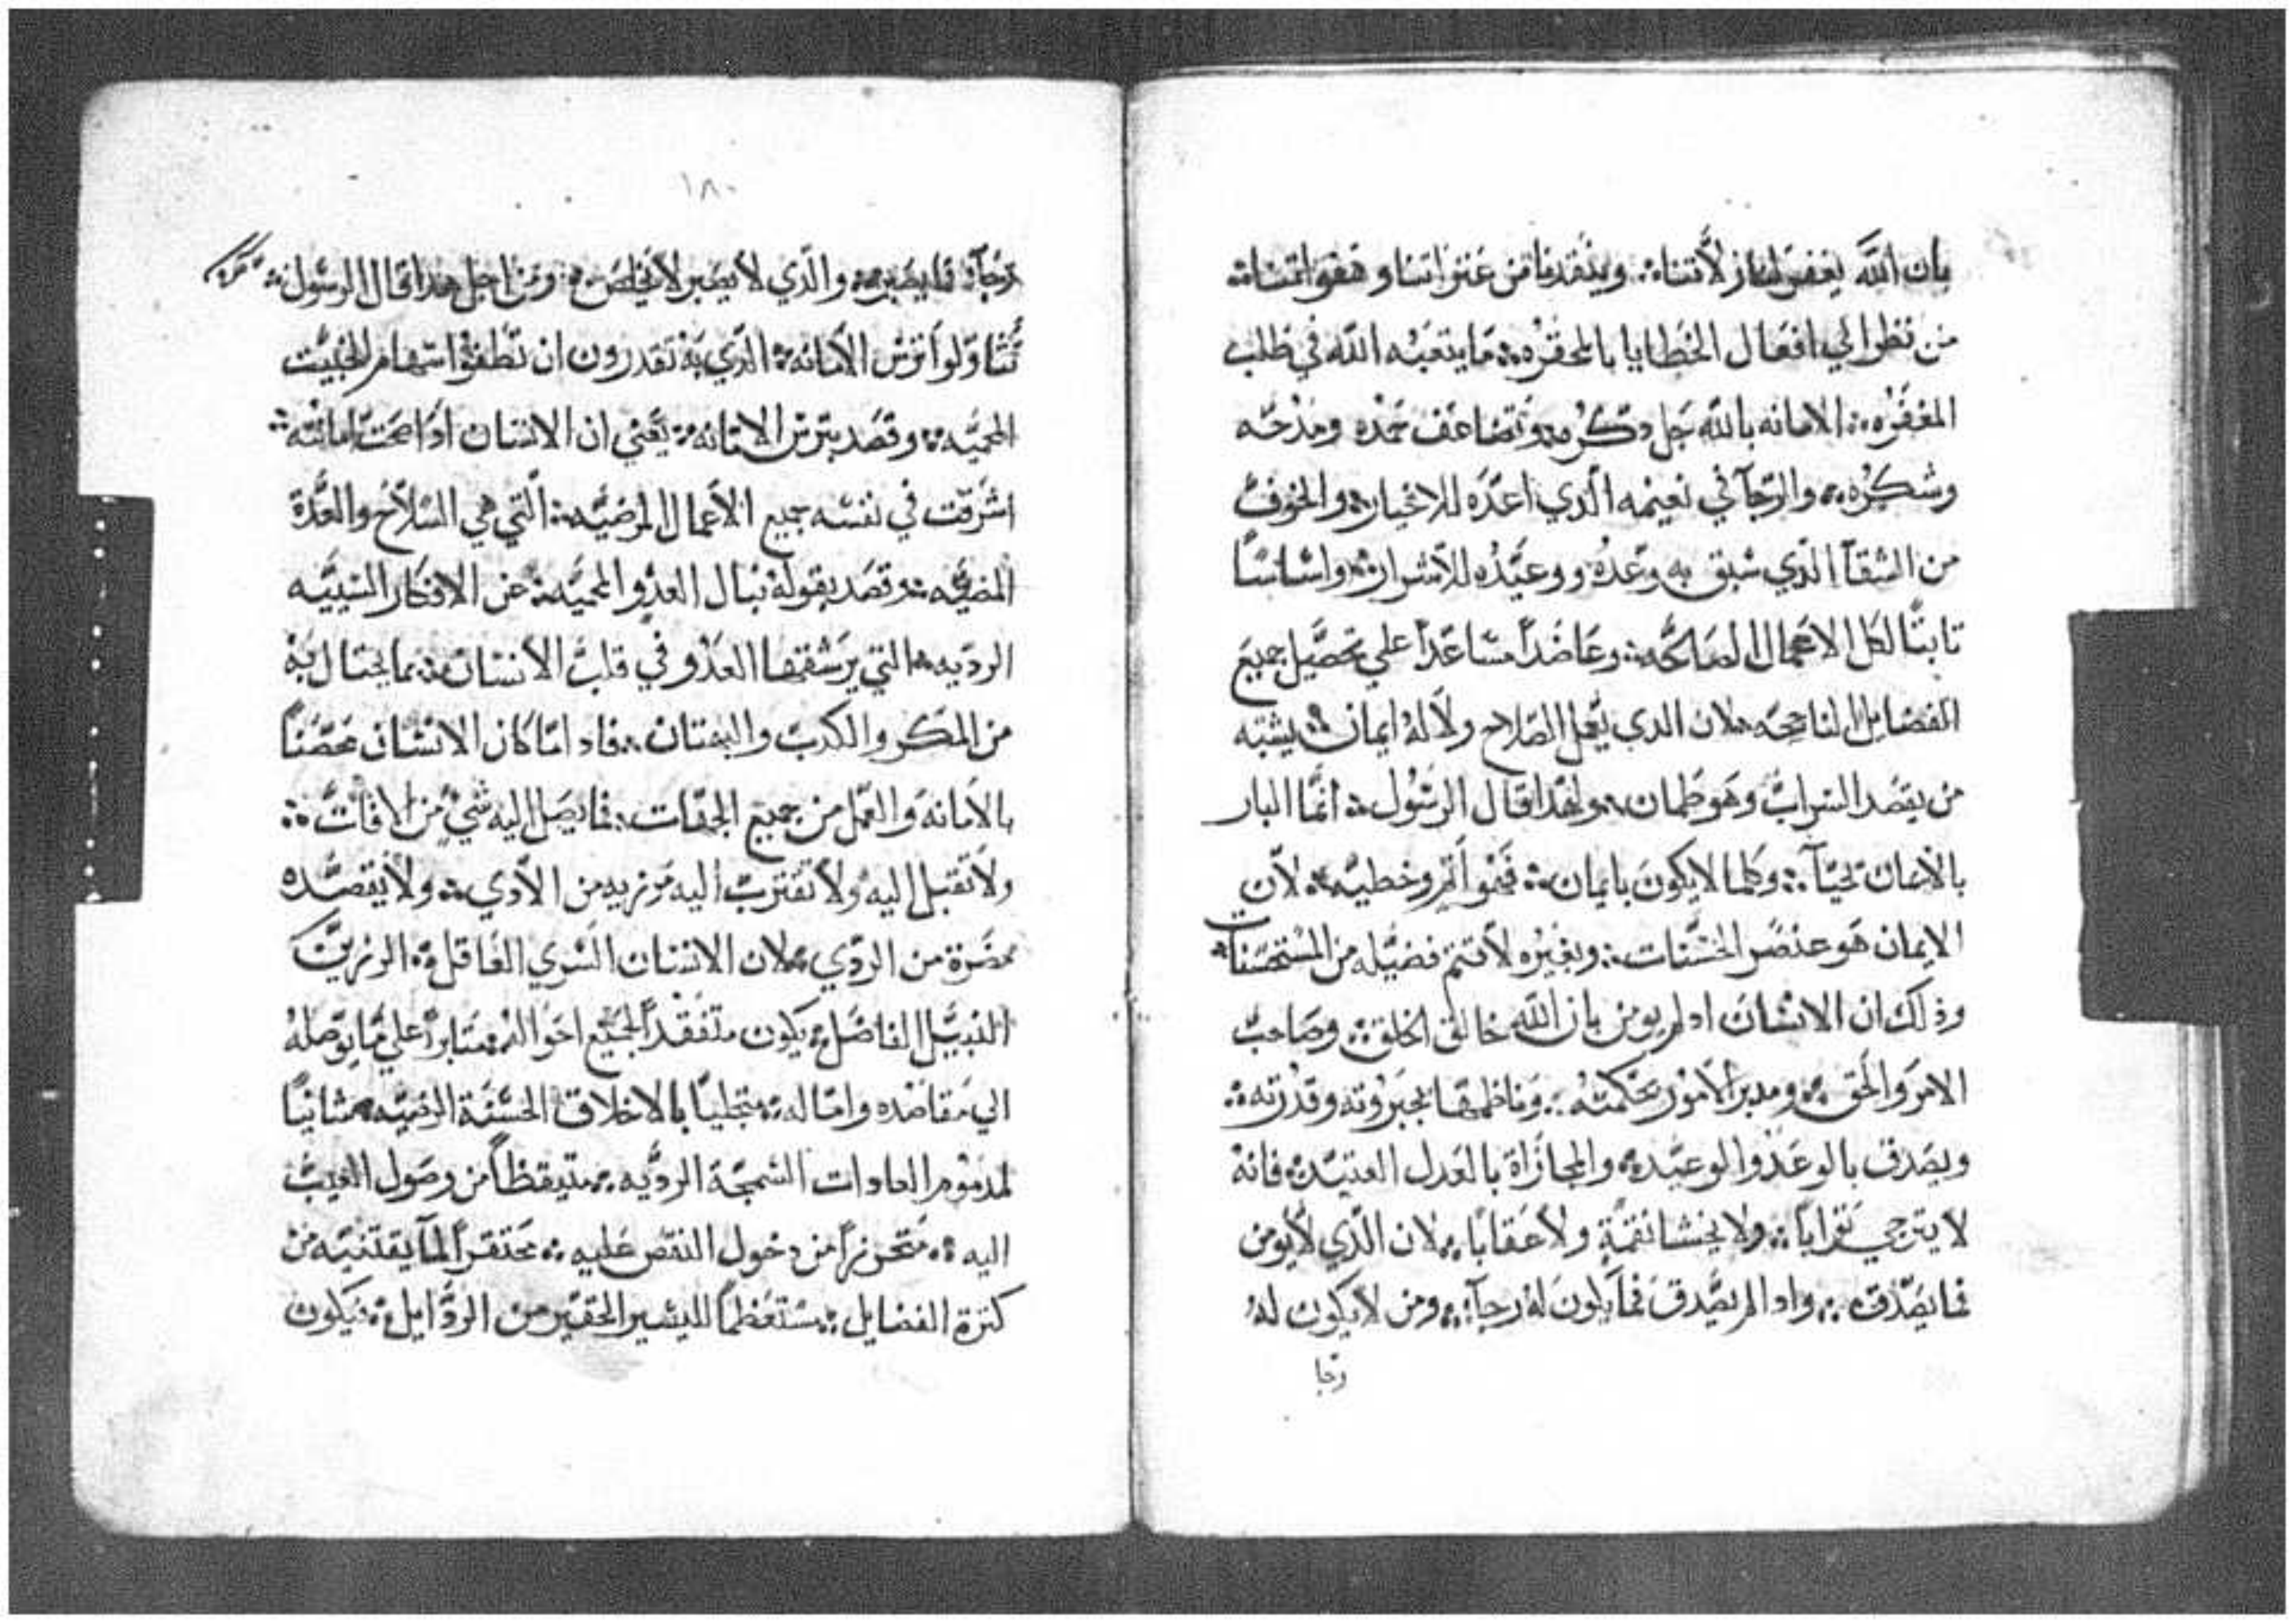 بان الله يغفر لنا زلاتنا ⁘ وينقدنا من عثراتنا وهفواتنا ⁘
من نظر الي افعال الخطايا بالمحقره ⁘ ما يتعبه الله في طلب
المغفره ⁘ الامانه بالله جل دكره وتضاعف حمده ومدحه
وشكره ⁘ والرجآ في نعيمه الدي اعده للاخيار ⁘ والخوف
من الشقآ الدي سبق به وعده ووعيده للاشرار ⁘ واساسًا
تابتًا لكل الاعمال الصالحه ⁘ وعاضدًا مساعدًا علي تحصيل جميع
الفضايل الناجحه ⁘ لان الدي يعمل الصلاح ولا له ايمان ⁘ يشبه
من يقصد السراب وهو ظمان ⁘ ولهدا قال الرسول ⁘ انما البار
بالايمان يحيآ ⁘ وكلما لا يكون بايمان ⁘ فهو اتم وخطيه ⁘ لان
الايمان هو عنصر الحسنات ⁘ وبغيره لا تتم فضيله من المستحسنات ⁘
وذلك ان الانسان ادا لم يومن بان الله خالق الخلق ⁘ وصاحب
الامر والحق ⁘ ومدبر الامور بحكمته ⁘ وناظمها بجبروته وقدرته ⁘
ويصدق بالوعد والوعيد ⁘ والمجازاة بالعدل العتيد ⁘ فانه
لا يترجي ثوابًا ⁘ ولا يخشا نقمةٍ ولا عقابًا ⁘ لان الدي لا يومن
فما يصدق ⁘ وادا لم يصدق فما يكون له رجآ ⁘ ومن لا يكون له
رجا
١٨٠
رجآ فما يصبر ⁘ والدي لا يصبر لا يخلص ⁘ ومن اجل هدا قال الرسول ⁘
تناولوا ترس الامانه ⁘ الدي به تقدرون ان تطفوا سهام الخبيت
المحميه ⁘ وقصد بترس الامانه ⁘ يعني ان الانسان ادا صحت امانته ⁘
اشرقت في نفسه جميع الاعمال المرضيه ⁘ التي هي السلاح والعدة
المضيه ⁘ وقصد بقوله نبال العدو المحميه ⁘ عن الافكار السييه
الرديه ⁘ التي يرشقها العدو في قلب الانسان ⁘ بما يحتال به
من المكر والكدب والبهتان ⁘ فادا ما كان الانسان محصنًا
بالامانه والعمل من جميع الجهات ⁘ فما يصل اليه شي من الافات ⁘
ولا تقبل اليه ولا تقترب اليه من الادي ⁘ ولا يقصده
مضرة من الردي ⁘ لان الانسان السوي العاقل ⁘ الرزين
النبيل الفاضل ⁘ يكون متفقدًا لجميع احواله ⁘ متابرًا علي ما يوصله
الي مقاصده واماله ⁘ متحليًا بالاخلاق الحسنة الرضيه ⁘ شانيًا
لمدموم العادات السمجة الرديه ⁘ متيقظًا من وصول العيب
اليه ⁘ متحرزًا من دخول النقص عليه ⁘ محتقرًا لمآ يقتنيه من
كترة الفضايل ⁘ مستعظمًا لليسير الحقير من الردايل ⁘ فيكون